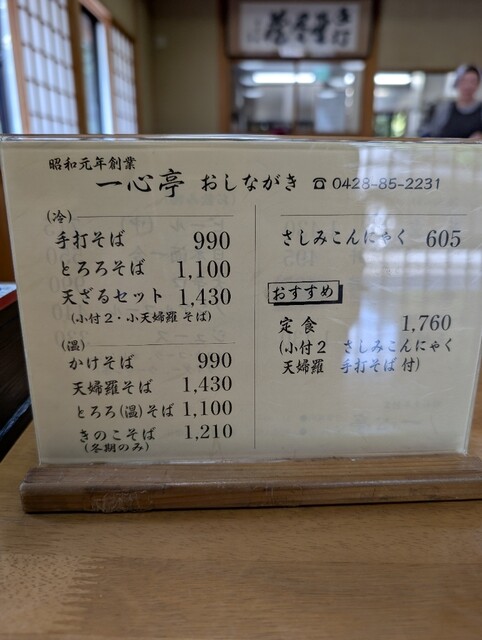 昭和元年創業
一心亭 おしながき ☎0428-85-2231
(冷)
手打そば 990
とろろそば 1,100
天ざるセット 1,430
(小付2・小天婦羅 そば)
(温)
かけそば 990
天婦羅そば 1,430
とろろ(温)そば 1,100
きのこそば 1,210
(冬期のみ)
さしみこんにゃく 605
おすすめ
定食 1,760
(小付2 さしみこんにゃく
天婦羅 手打そば 付)